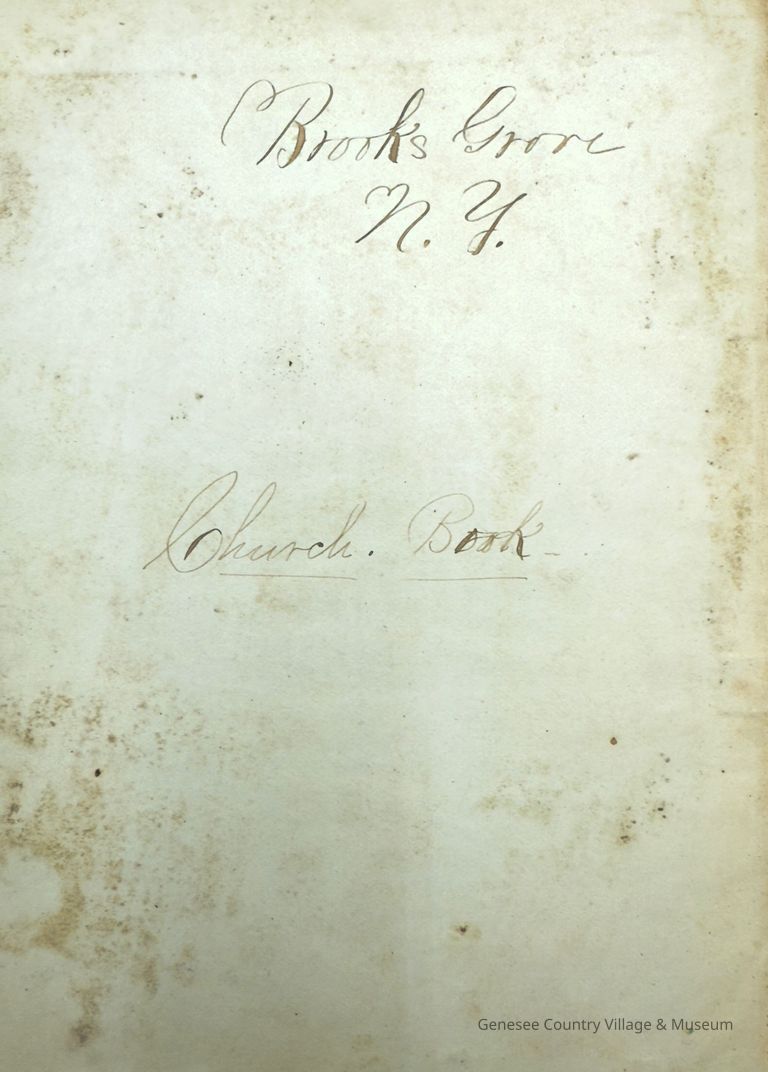 Brooks Grove
N. Y.
Church. Book
Genesee Country Village & Museum